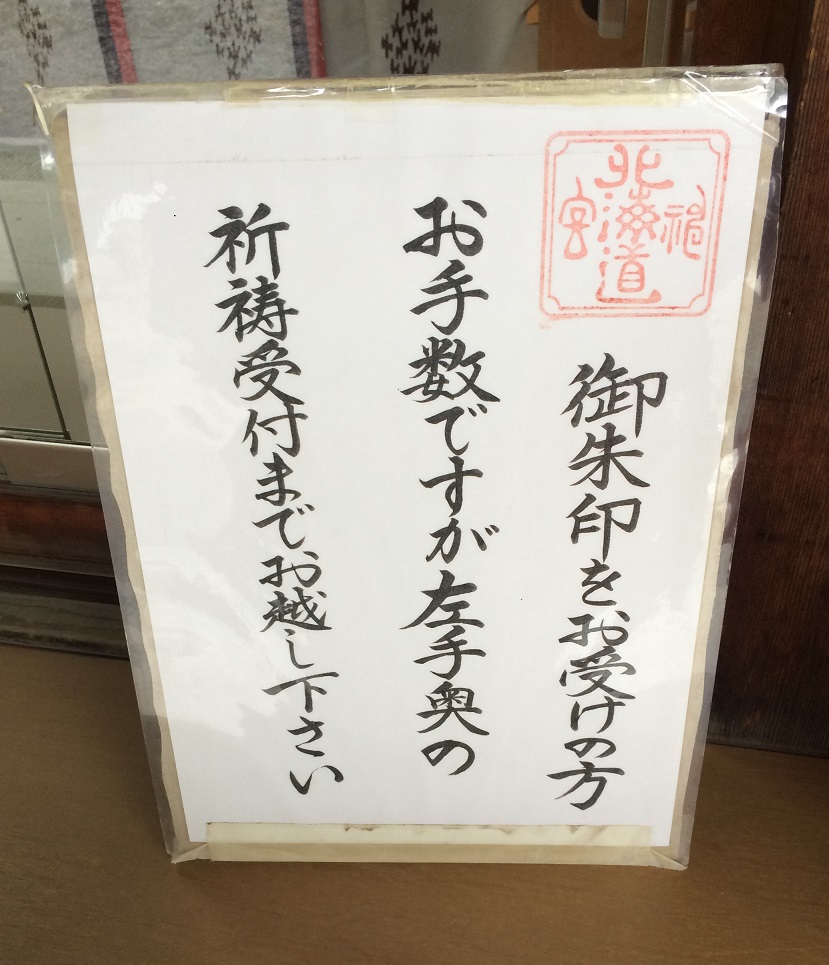 北海道神宮
御朱印をお受けの方
お手数ですが左手奥の
祈祷受付までお越し下さい